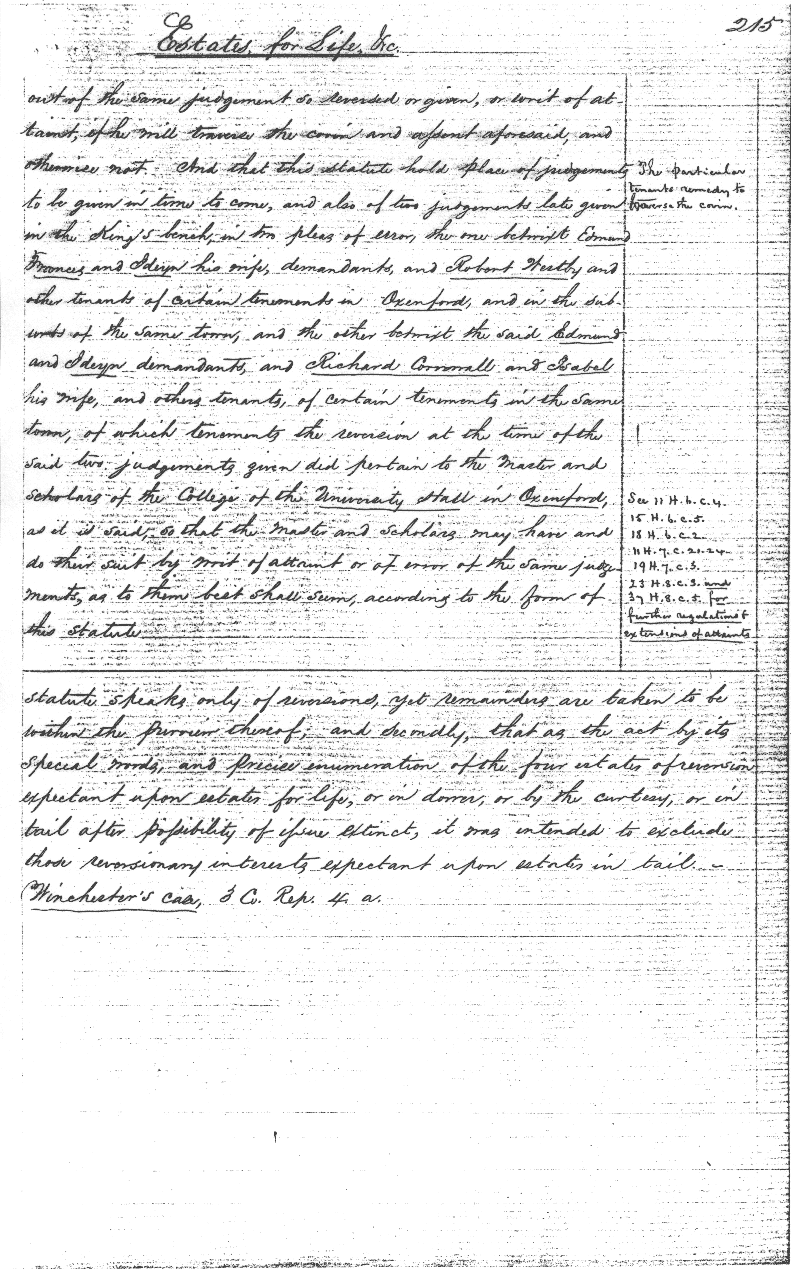 215
Estates, for Life, &c.
out of the same judgement so reversed or given, or writ of at-
taint, if he will traverse the covin and assent aforesaid, and
otherwise not. And that this statute hold place of judgements
to be given in time to come, and also of two judgements late given
in the King's bench, in two pleas of error, the one betwixt Edmund
Frances and Ideyn his wife, demandants, and Robert Westby and
other tenants of certain tenements in Oxenford, and in the sub-
urbs of the same town, and the other betwixt the said Edmund
and Ideyn demandants, and Richard Cornwall and Isabel
his wife, and others tenants, of certain tenements in the same
town, of which tenements the reversion at the time of the
said two judgements given did pertain to the Master and
Scholars of the College of the University Hall in Oxenford,
as it is said, so that the Master and Scholars may have and
do their suit by writ of attaint or of error of the same judge-
ments, as to them best shall seem, according to the form of
this statute
The particular
tenants remedy to
traverse the covin.
See 11 H. 6. c. 4.
15 H. 6. c. 5.
18 H. 6. c. 2.
11 H. 7. c. 21. 24.
19 H. 7. c. 3.
23 H. 8. c. 3. and
37 H. 8. c. 5. for
further regulations &
extensions of attaints
statute speaks only of reversions, yet remainders are taken to be
within the purview thereof; and secondly, that as the act by its
special words, and precise enumeration of the four estates of reversion
expectant upon estates for life, or in dower, or by the curtesy, or in
tail after possibility of issue extinct, it was intended to exclude
those reversionary interests expectant upon estates in tail. -
Winchester's case, 3 Co. Rep. 4. a.